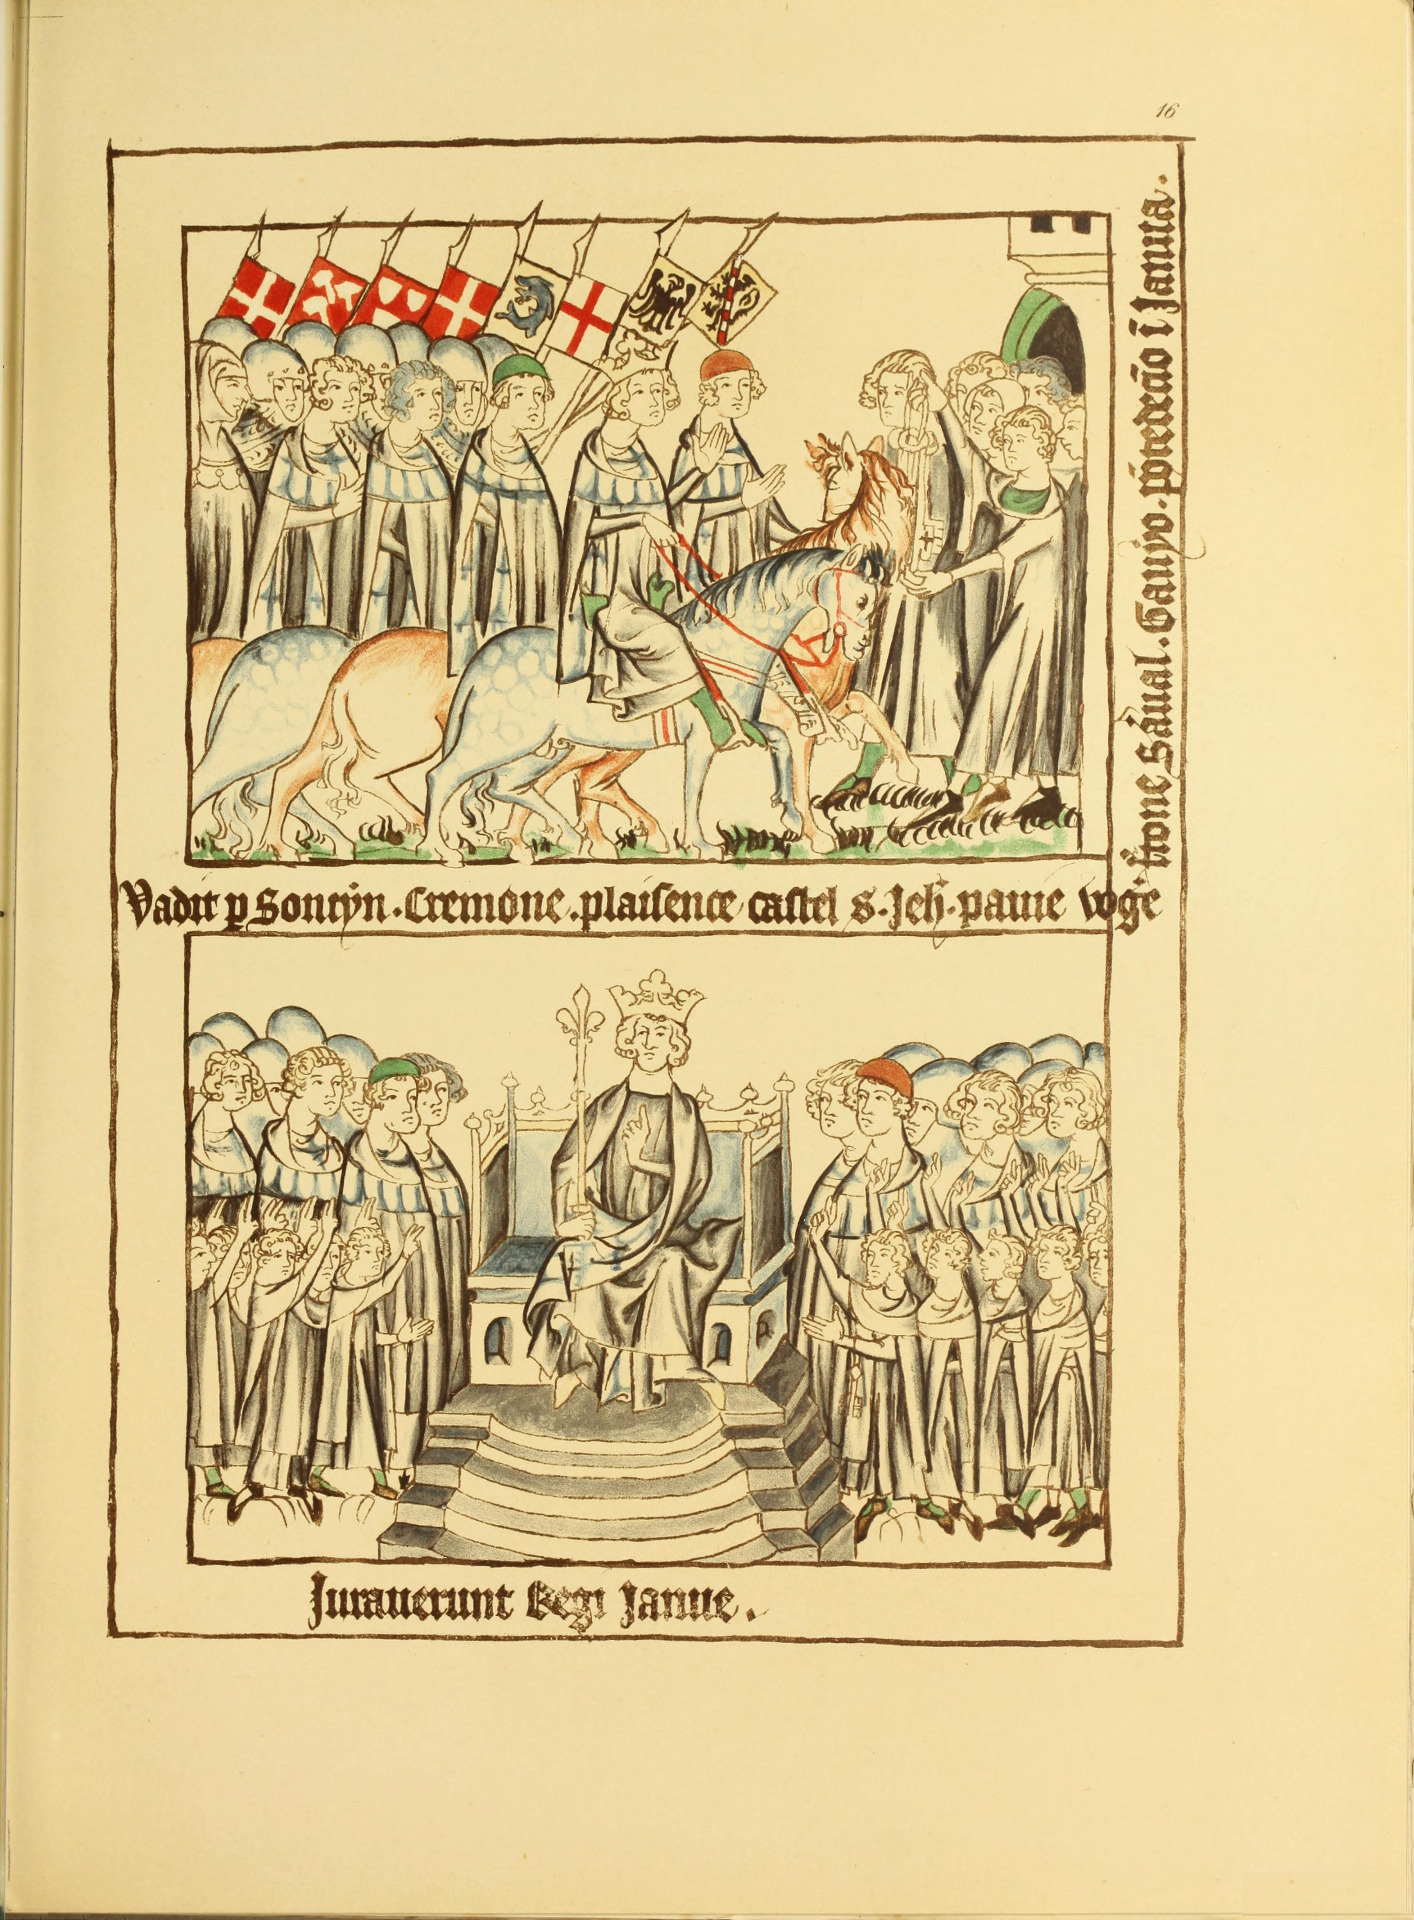 16
Vadit p Sontyn. Cremone. plaisence castel s. Jeh. pavie voge
Terdone Saual. Gaujvo. pdecio i Janua.
Juraverunt Regi Janue.